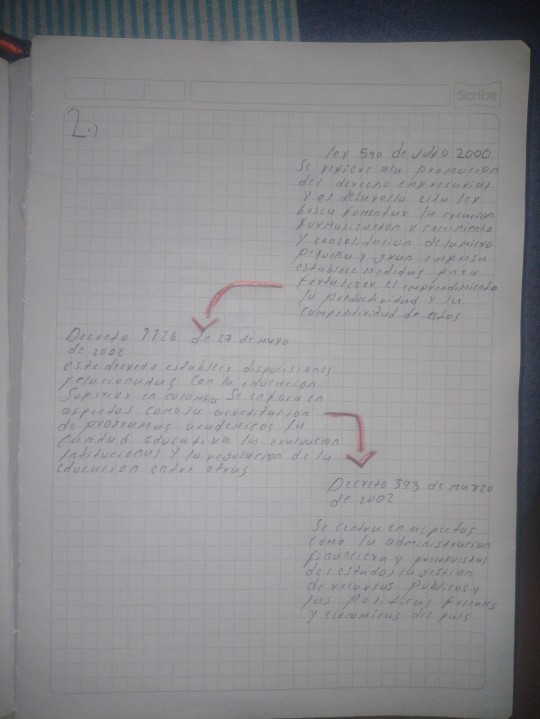 Scribe
2.)
ley 590 de Julio 2000
Se refiere ala promocion
del derecho empresarial
y el desarrollo esta ley
busca fomentar la creacion
formalizacion y crecimiento
y consolidacion de la micro
pequeña y gran empresa
establece medidas para
fortalecer el emprendimiento
la productividad y la
competitividad de estas
Decreto 1126 de 27 de mayo
de 2002
este decreto establece disposiciones
relacionadas con la educacion
Superior en colombia Se enfoca en
aspectos como la acreditacion
de programas academicos la
calidad educativa la evaluacion
institucional y la regulacion de la
educacion entre otras
Decreto 393 de marzo
de 2002
Se centra en aspectos
como la administracion
financiera y
del estado, la gestion
de recursos publicos y
las politicas fiscales
y economicas del pais